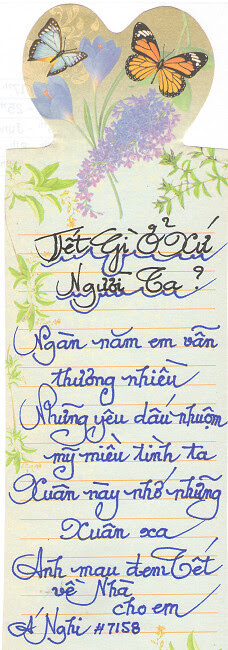 Tết Gì Ở Xứ
Người Ta ?
Ngàn năm em vẫn
thương nhiều
Những yêu dấu nhuộm
mỹ miều tình ta
Xuân này nhớ những
Xuân xa
Anh mau đem Tết
về Nhà
cho em
Á Nghi #7158